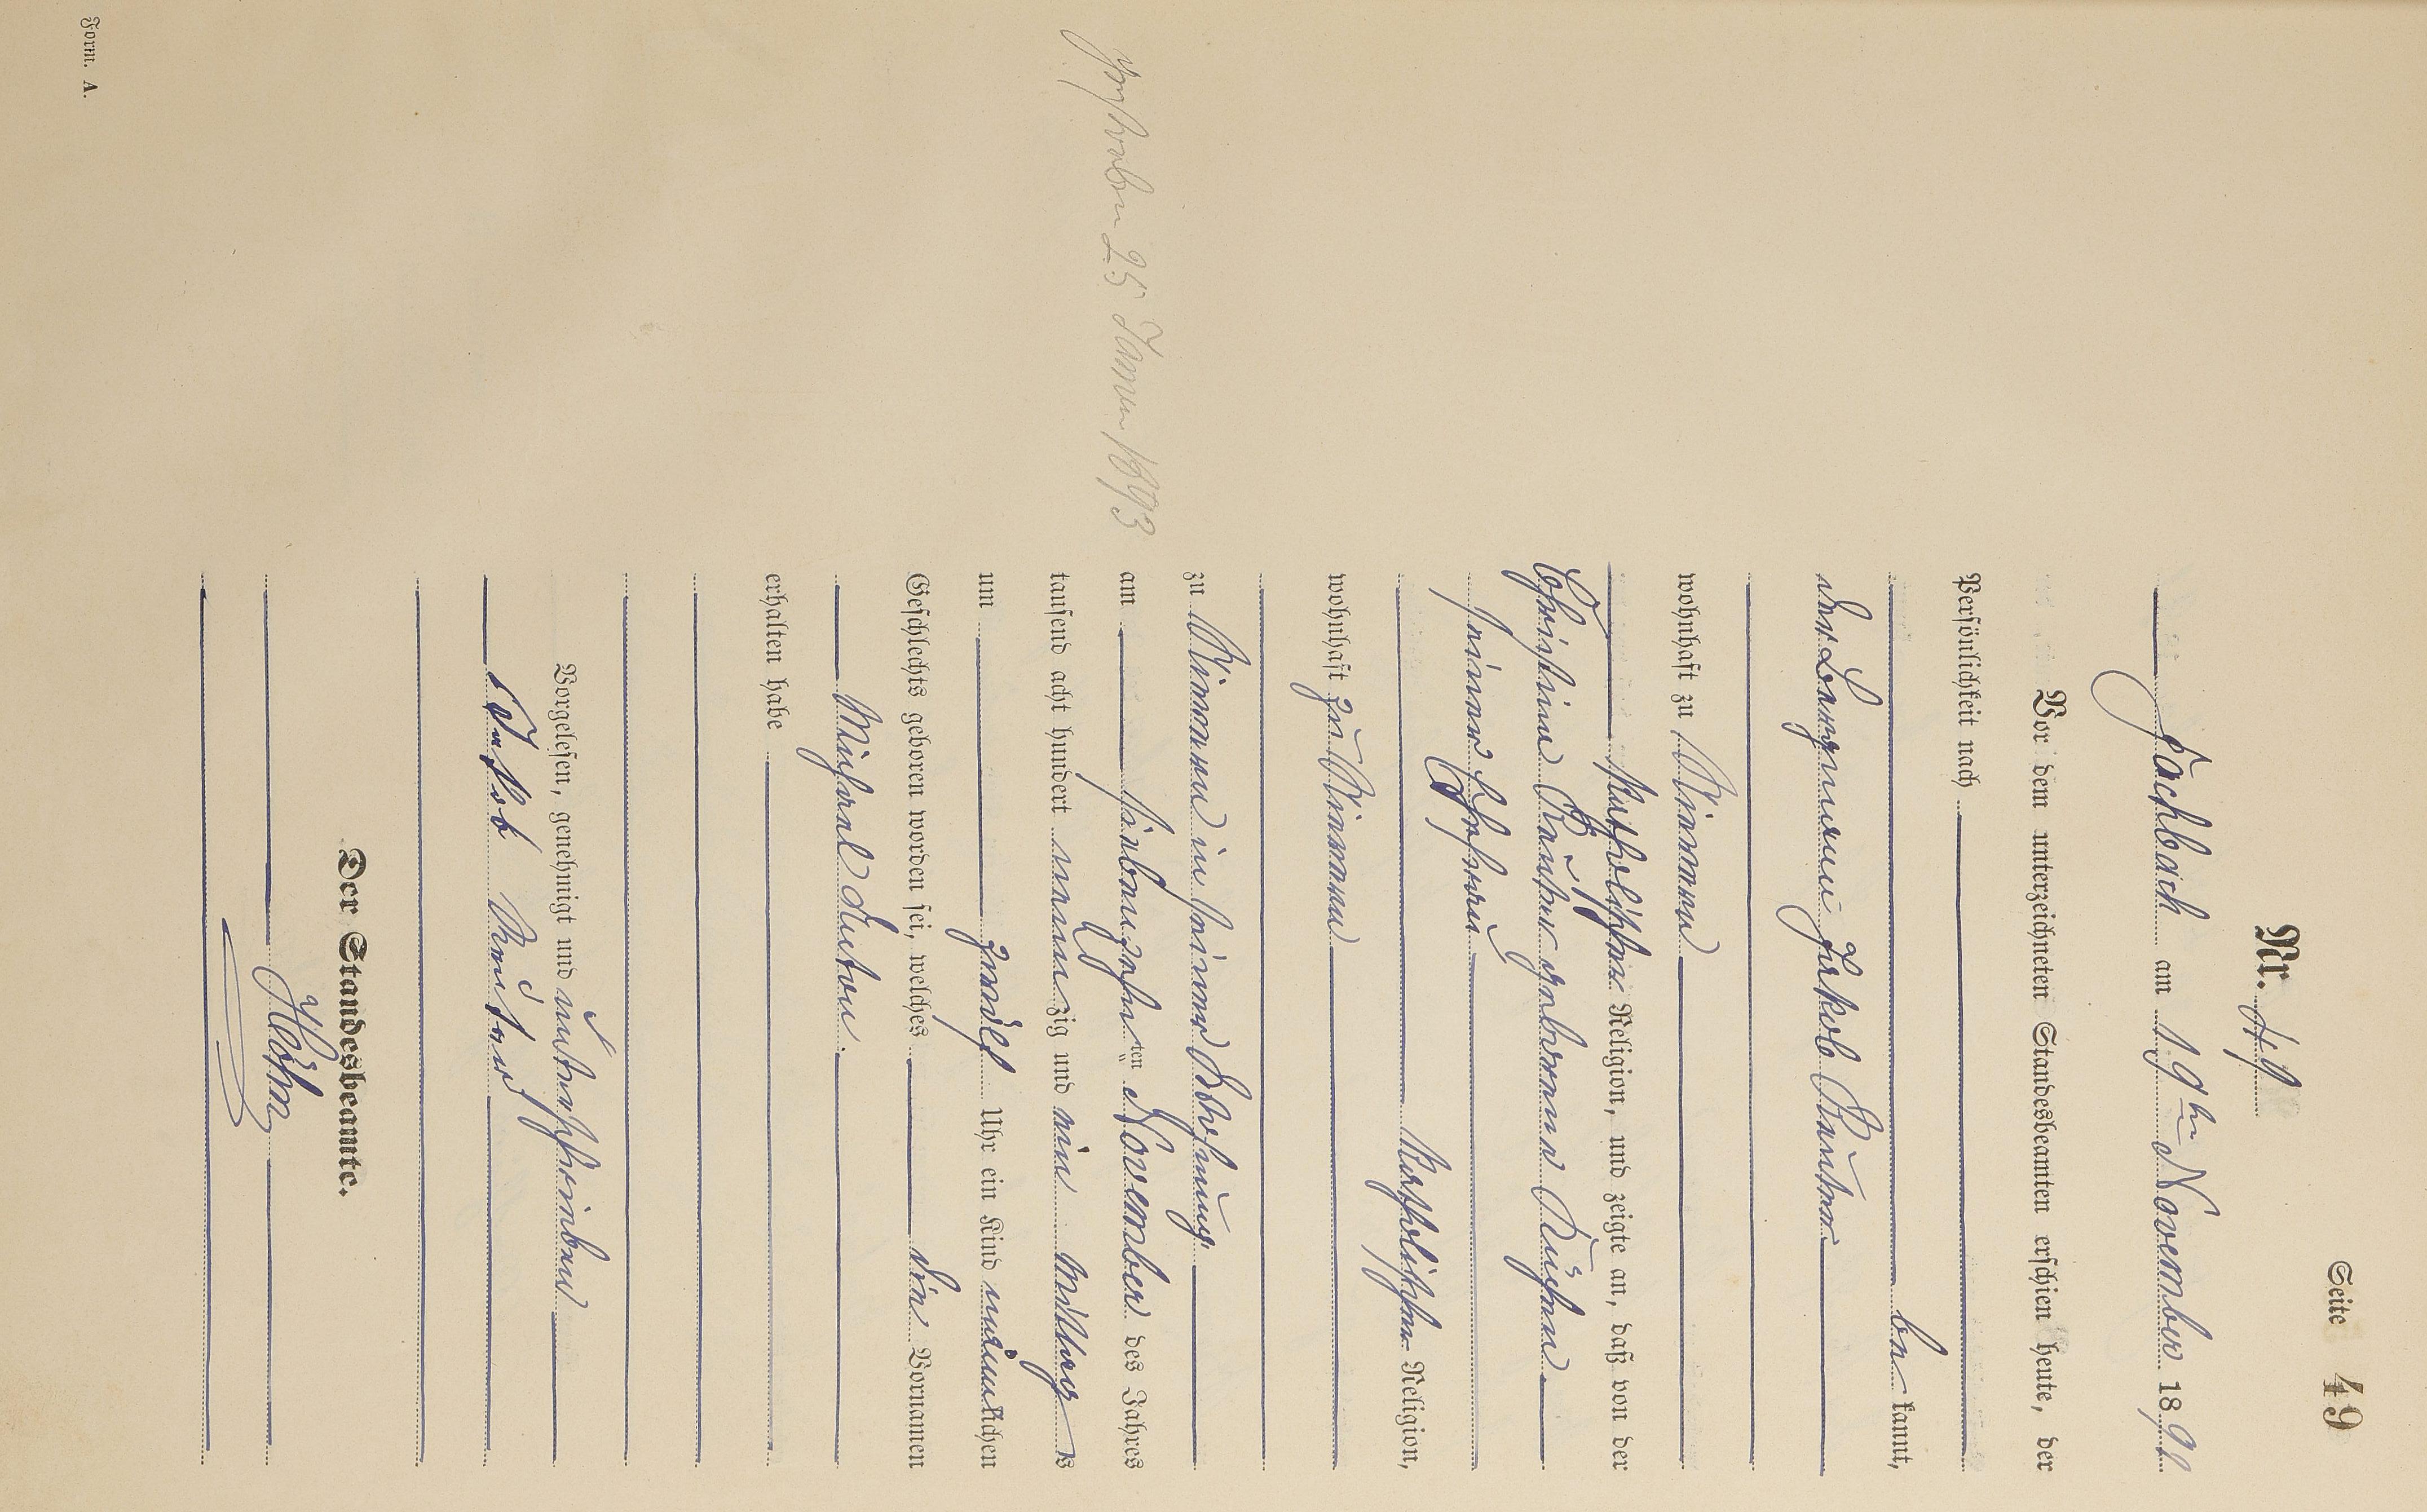 Seite 49
Nr.
Forbach am 19ten November 1891
Vor dem unterzeichneten Standesbeamten erschien heute, der
Persönlichkeit nach
be kannt,
der Bergmann Jakob Reuter
wohnhaft zu
katholischer Religion, und zeigte an, daß von der
Christine Reuter geborene
seiner Ehefrau
katholischer Religion,
wohnhaft zu
zu in seiner Wohnung
am siebenzehn ten November des Jahres
tausend acht hundert neun zig und ein Mittags
um zwölf Uhr ein Kind männlichen
Geschlechts geboren worden sei, welches den Vornamen
Michael Anton.
erhalten habe
Vorgelesen, genehmigt und unterschrieben
Jakob Reuter
Der Standesbeamte.
Höhn
gestorben 25 Januar 1893
Form. A.